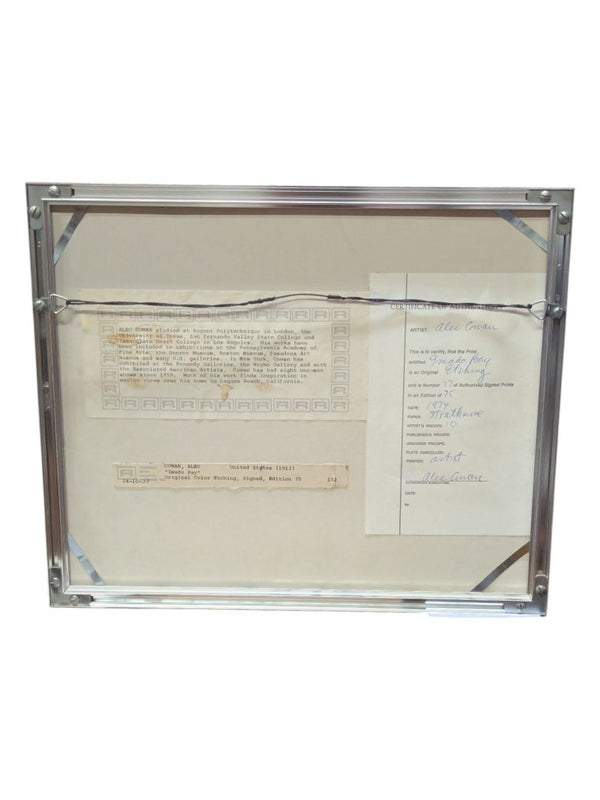 ALEC COWAN studied at Regent Polytechnique in London, the
University of Texas, San Fernando Valley State College and
Immaculate Heart College in Los Angeles. His works have
been included in exhibitions at the Pennsylvania Academy of
Fine Arts, the Denver Museum, Boston Museum, Pasadena Art
Museum and many U.S. galleries. In New York, Cowan has
exhibited at the Kennedy Galleries, the Weyhe Gallery and with
the Associated American Artists. Cowan has had eight one-man
shows since 1959. Much of his work finds inspiration in
marine views near his home in Laguna Beach, California.
COWAN, ALEC United States (1912)
Original Color Etching, Signed, Edition 75
CERTIFICATE OF
ARTIST: Alec Cowan
This is to certify, that the Print
entitled
is an Original Etching
and is Number 37 of Authorized Signed Prints
in an Edition of 75
DATE: 1974
PAPER: Strathmore
ARTIST'S PROOFS: 10
PUBLISHER'S PROOFS:
UNSIGNED PROOFS:
PLATE CANCELLED:
PRINTER: artist
Alec Cowan
AUTHORIZED SIGNATURE
DATE:
by